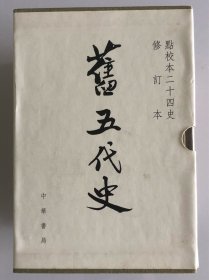 點校本二十四史
修訂本
舊五代史
中華書局